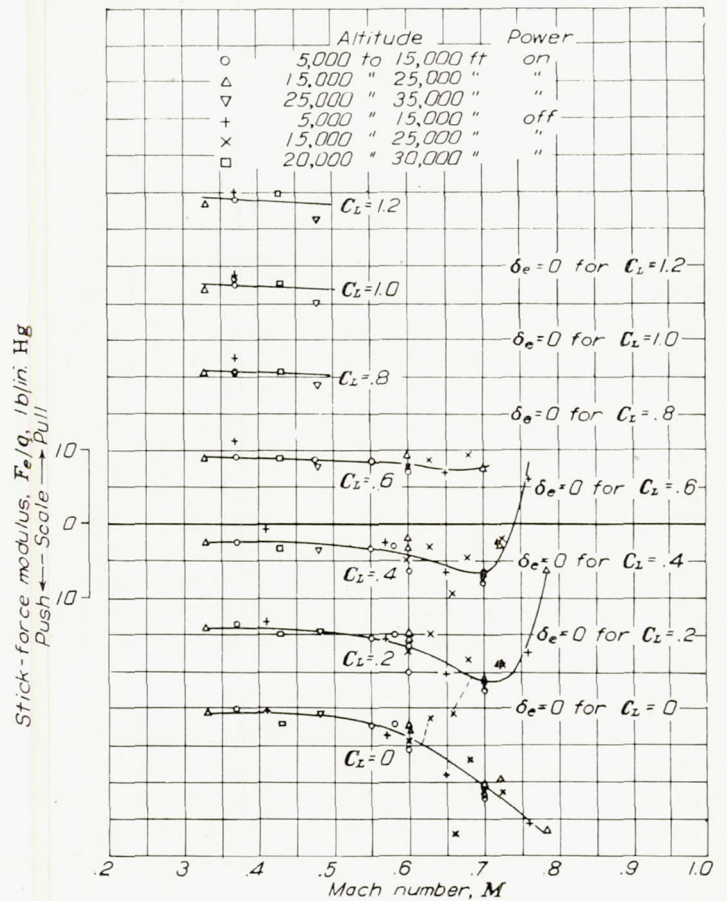 Altitude Power
○ 5,000 to 15,000 ft on
△ 15,000 " 25,000 " "
▽ 25,000 " 35,000 " "
+ 5,000 " 15,000 " off
× 15,000 " 25,000 " "
□ 20,000 " 30,000 " "
C_L=1.2
δe=0 for C_L=1.2
C_L=1.0
δe=0 for C_L=1.0
C_L=.8
δe=0 for C_L=.8
C_L=.6
δe=0 for C_L=.6
C_L=.4
δe=0 for C_L=.4
C_L=.2
δe=0 for C_L=.2
C_L=0
δe=0 for C_L=0
Stick-force modulus, Fe/q, lb/in. Hg
Push ← Scale → Pull
10
0
10
.2 .3 .4 .5 .6 .7 .8 .9 1.0
Mach number, M